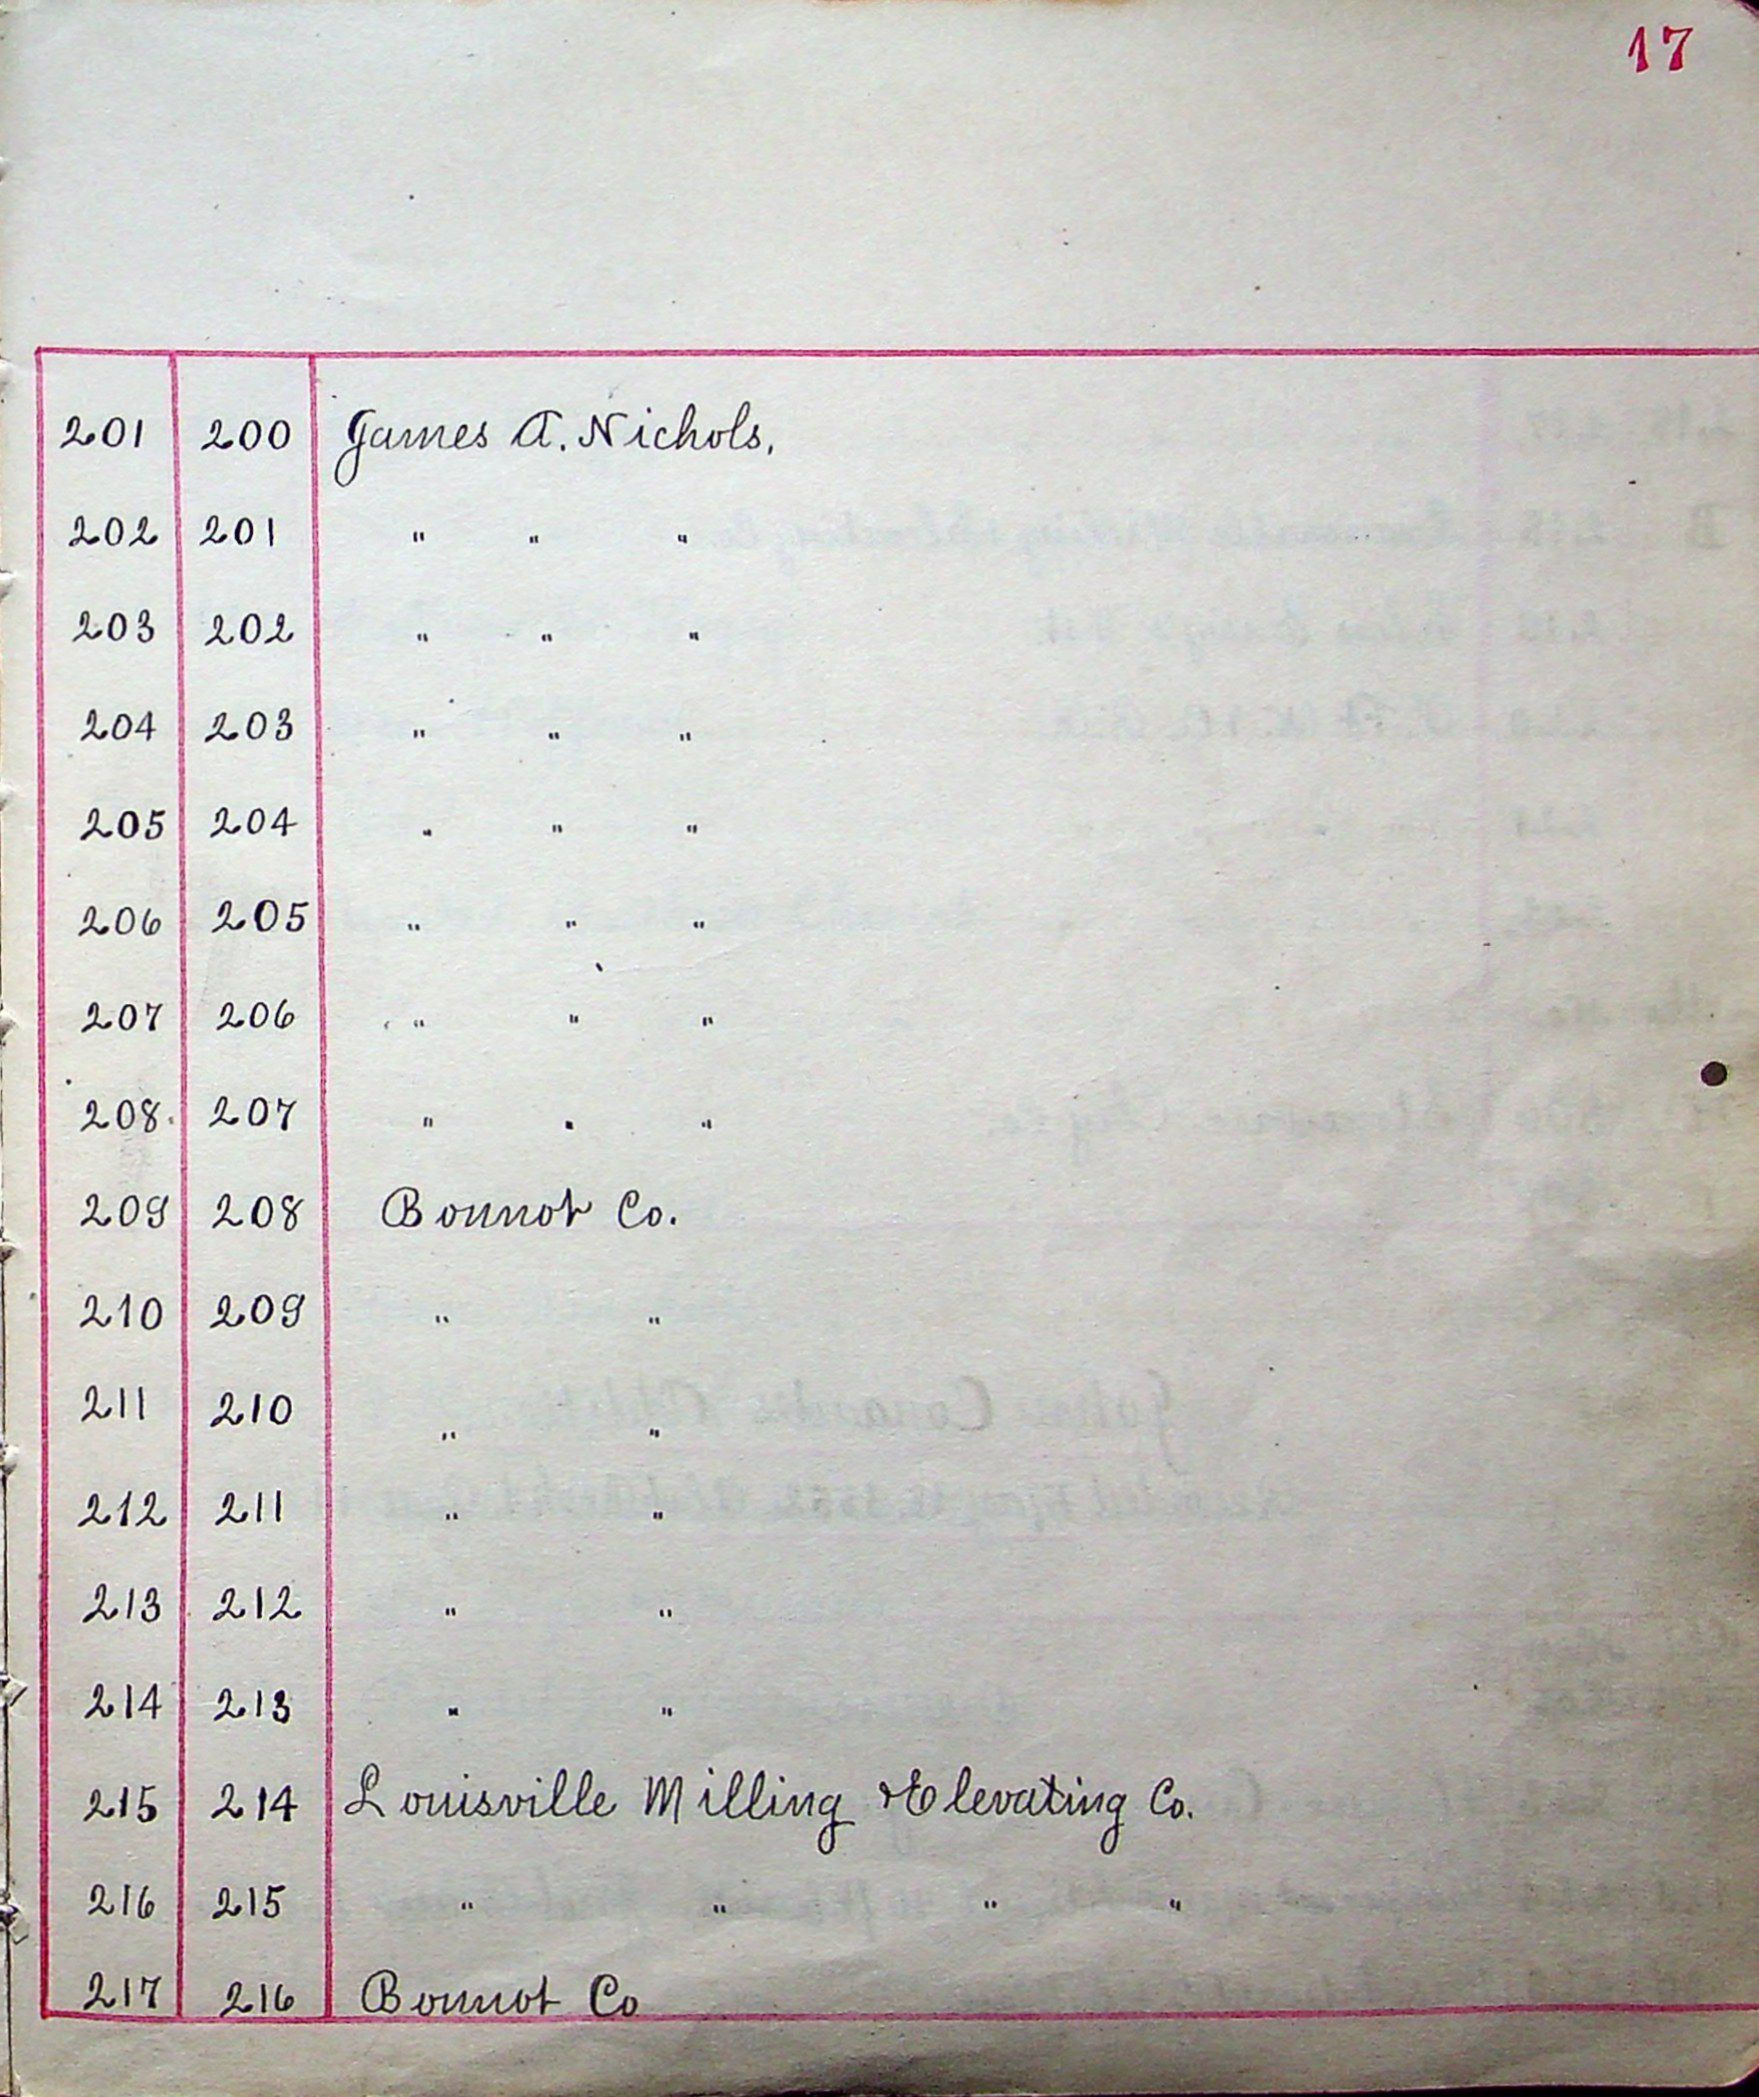 17
201 200 James A. Nichols.
202 201 " " "
203 202 " " "
204 203 " " "
205 204 " " "
206 205 " " "
207 206 " " "
208 207 " " "
209 208 Bonnot Co.
210 209 " "
211 210 " "
212 211 " "
213 212 " "
214 213 " "
215 214 Louisville Milling & Elevating Co.
216 215 " " " "
217 216 Bonnot Co